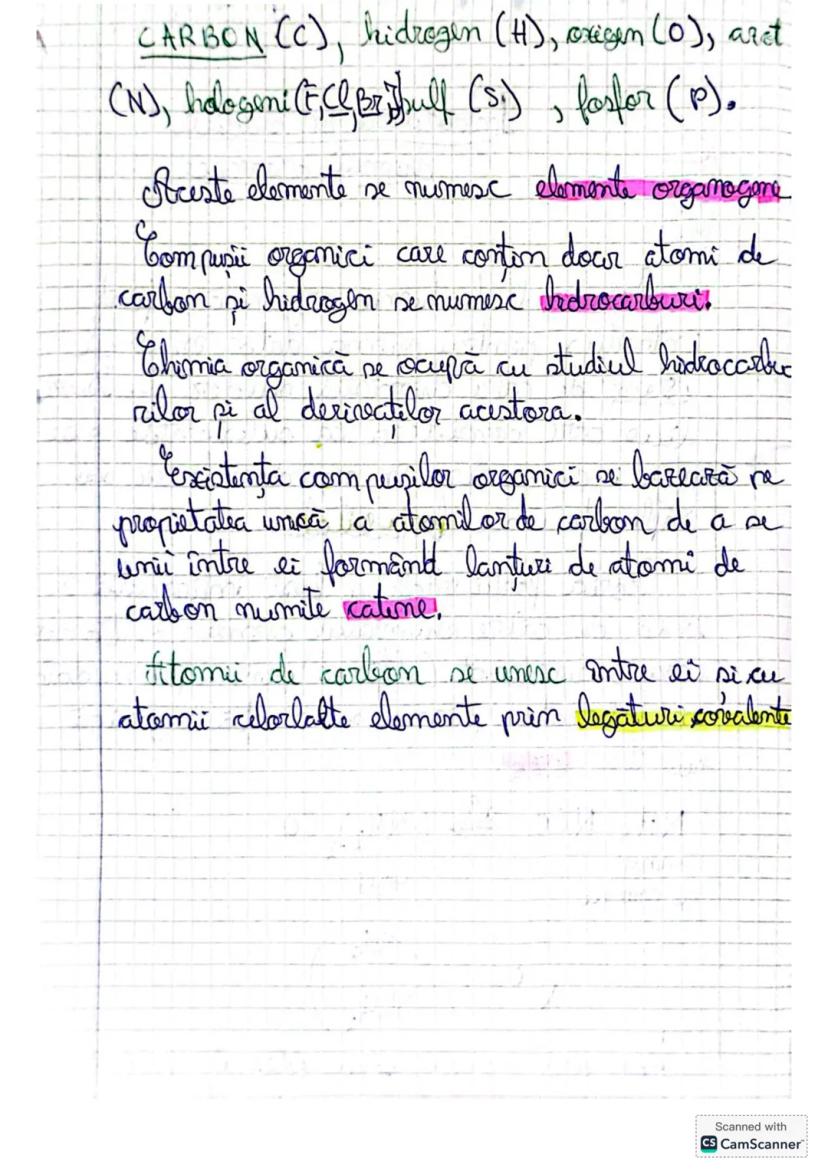 CARBON (C), hidrogen (H), oxigen (O), azot
(N), halogeni (F,Cl,Br,I) sulf (S) , fosfor (P).
Aceste elemente se numesc elemente organogene
Compușii organici care conțin doar atomi de
carbon și hidrogen se numesc hidrocarburi.
Chimia organică se ocupă cu studiul hidrocarbu
rilor și al derivaților acestora.
Existența compușilor organici se bazează pe
propietatea unică a atomilor de carbon de a se
unii între ei formând lanțuri de atomi de
carbon numite catene.
Atomii de carbon se unesc între ei si cu
atomii celorlalte elemente prin legături covalente
Scanned with
CS CamScanner